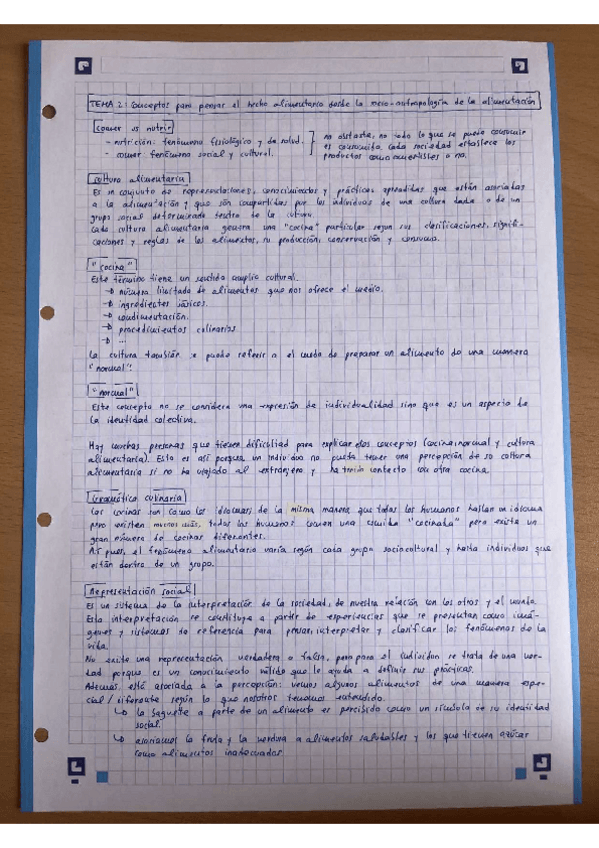 TEMA 2: Conceptos para pensar el hecho alimentario desde la socio-antropología de la alimentación
comer vs nutrir
- nutrición: fenómeno fisiológico y de salud.
- comer fenómeno social y cultural.
no obstante, no todo lo que se puede consumir
es consumido. Cada sociedad establece los
productos como comestibles o no.
cultura alimentaria
Es un conjunto de representaciones, conocimientos y prácticas aprendidas que están asociadas
a la alimentación y que son compartidas por los individuos de una cultura dada o de un
grupo social determinado dentro de la cultura.
Cada cultura alimentaria genera una "cocina" particular según sus clasificaciones, signifi-
caciones y reglas de los alimentos, su producción, conservación y consumo.
"cocina"
Este término tiene un sentido amplio cultural.
→ número limitado de alimentos que nos ofrece el medio.
→ ingredientes básicos.
→ condimentación.
→ procedimientos culinarios
→ ...
La cultura también se puede referir a el modo de preparar un alimento de una manera
"normal".
"normal"
Este concepto no se considera una expresión de individualidad sino que es un aspecto de
la identidad colectiva.
Hay muchas personas que tienen dificultad para explicar esos conceptos (cocina, normal y cultura
alimentaria). Esto es así porque un individuo no puede tener una percepción de su cultura
alimentaria si no ha viajado al extranjero y ha tenido contacto con otra cocina.
Gramática culinaria
Las cocinas son como los idiomas; de la misma manera que todos los humanos hablan un idioma
pero existen muchos más, todos los humanos comen una comida "cocinada" pero existe un
gran número de cocinas diferentes.
Así pues, el fenómeno alimentario varía según cada grupo sociocultural y hasta individuos que
están dentro de un grupo.
Representación social
Es un sistema de la interpretación de la sociedad, de nuestra relación con los otros y el mundo.
Esta interpretación se constituye a partir de experiencias que se presentan como imá-
genes y sistemas de referencia para pensar, interpretar y clasificar los fenómenos de la
vida.
No existe una representación verdadera o falsa, pero para el individuo se trata de una ver-
dad porque es un conocimiento válido que le ayuda a definir sus prácticas.
Además, está asociada a la percepción: vemos algunos alimentos de una manera espe-
cial / diferente según lo que nosotros tenemos entendido.
↳ la baguete a parte de un alimento es percibido como un símbolo de su identidad
social.
↳ asociamos la fruta y la verdura a alimentos saludables y los que tienen azúcar
como alimentos inadecuados